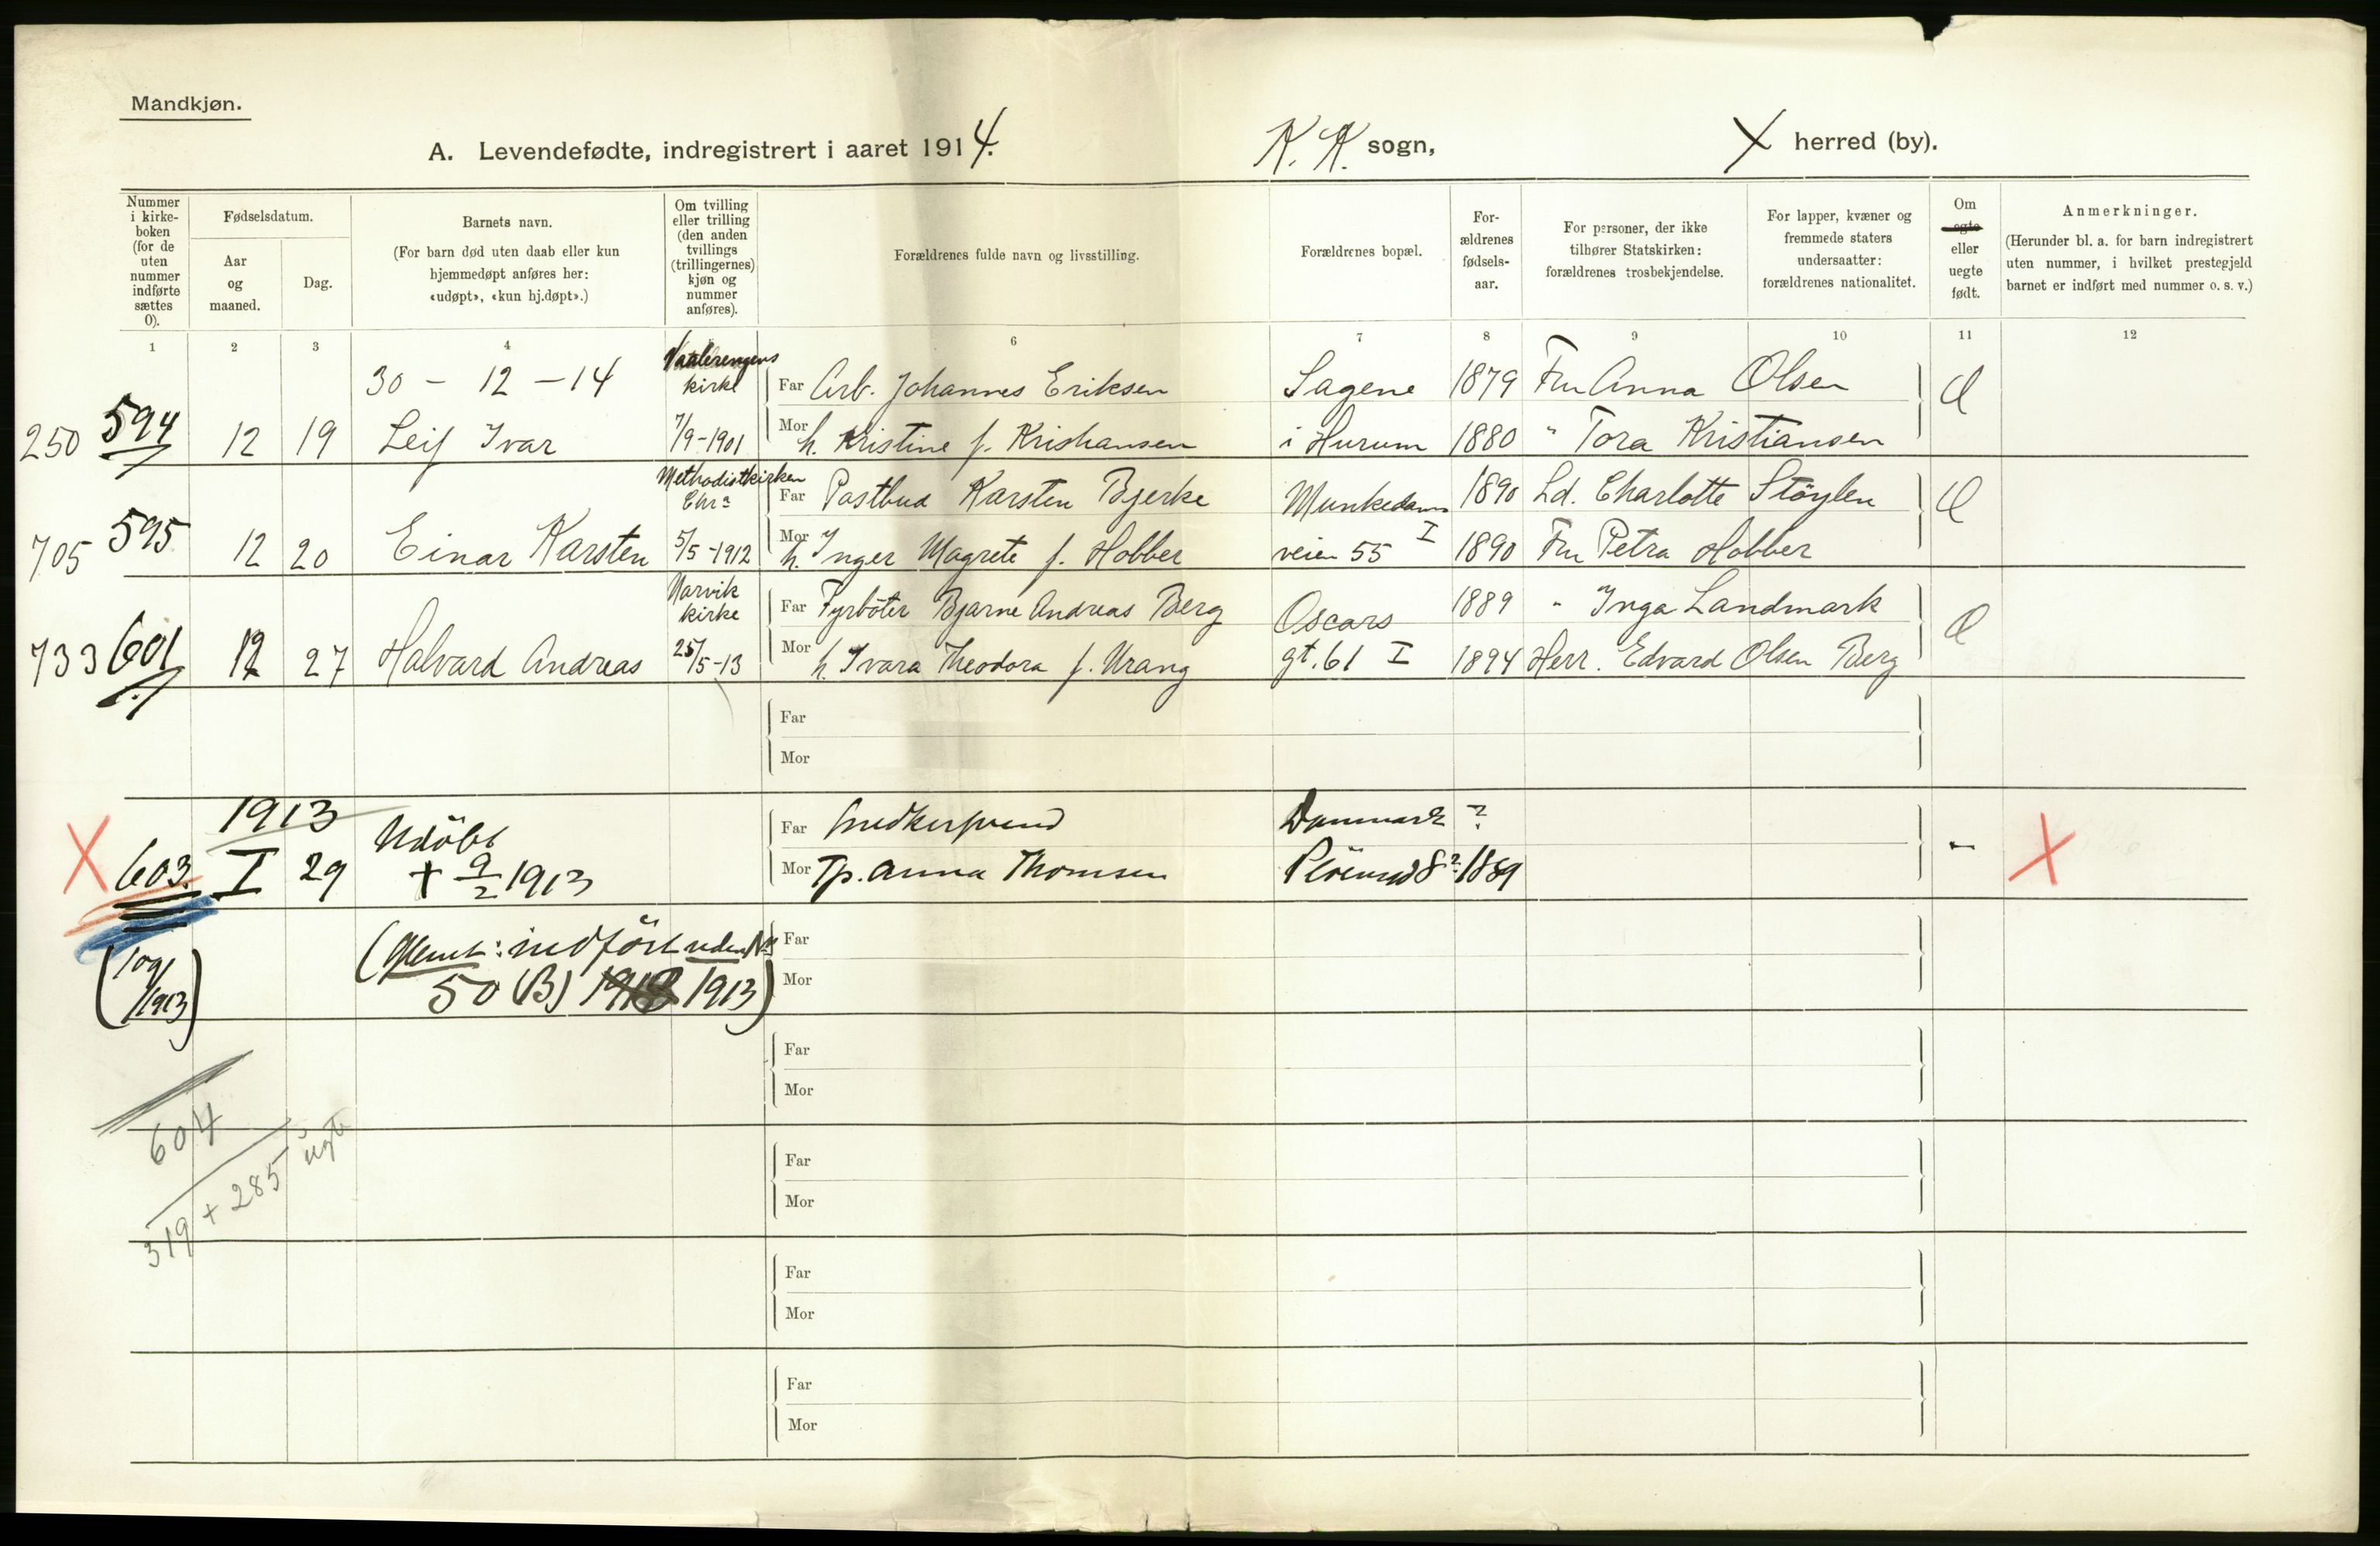 Mandkjøn.
A. Levendefødte, indregistrert i aaret 1914. K. K. sogn, X herred (by).
Nummer i kirke-boken (for de uten nummer indførte sættes 0).
Fødselsdatum.
Aar og maaned.
Dag.
Barnets navn.
(For barn død uten daab eller kun hjemmedøpt anføres her: «udøpt», «kun hj.døpt».)
Om tvilling eller trilling (den anden tvillings (trillingernes) kjøn og nummer anføres).
Forældrenes fulde navn og livsstilling.
Forældrenes bopæl.
For-ældrenes fødsels-aar.
For personer, der ikke tilhører Statskirken: forældrenes trosbekjendelse.
For lapper, kvæner og fremmede staters undersaatter: forældrenes nationalitet.
Om egte eller uegte født.
Anmerkninger.
(Herunder bl. a. for barn indregistrert uten nummer, i hvilket prestegjeld barnet er indført med nummer o. s. v.)
1 2 3 4 6 7 8 9 10 11 12
30 - 12 - 14 Vaalerengens kirke Far Arb. Johannes Eriksen Sagene 1879 Fru Anna Olsen
250 594 12 19 Leif Ivar 7/9-1901 Mor h. Kristine f. Kristiansen i Hurum 1880 " Tora Kristiansen
Methodistkirken Chra Far Postbud Karsten Bjerke Munkedams 1890 Ld. Charlotte Støylen
705 595 12 20 Einar Karsten 5/5-1912 Mor h. Inger Magrete f. Hobber veien 55 I 1890 Fru Petra Hobber
Narvik kirke Far Fyrbøter Bjarne Andreas Berg Oscars 1889 " Inga Landmark
733 601 12 27 Halvard Andreas 25/5-13 Mor h. Ivara Theodora f. Urang gt. 61 I 1894 Herr. Edvard Olsen Berg
Far
Mor
1913 Udöbt Far Snedkersvend Danmark ?
X 603. I 29 + 9/2 1913 Mor Tp. Anna Thomsen 8 1889 - X
(Glemt: indført uden No Far
(109/1913) 50 (B) 1913) Mor
Far
Mor
604
319 + 285 uegte
Far
Mor
Far
Mor
Far
Mor